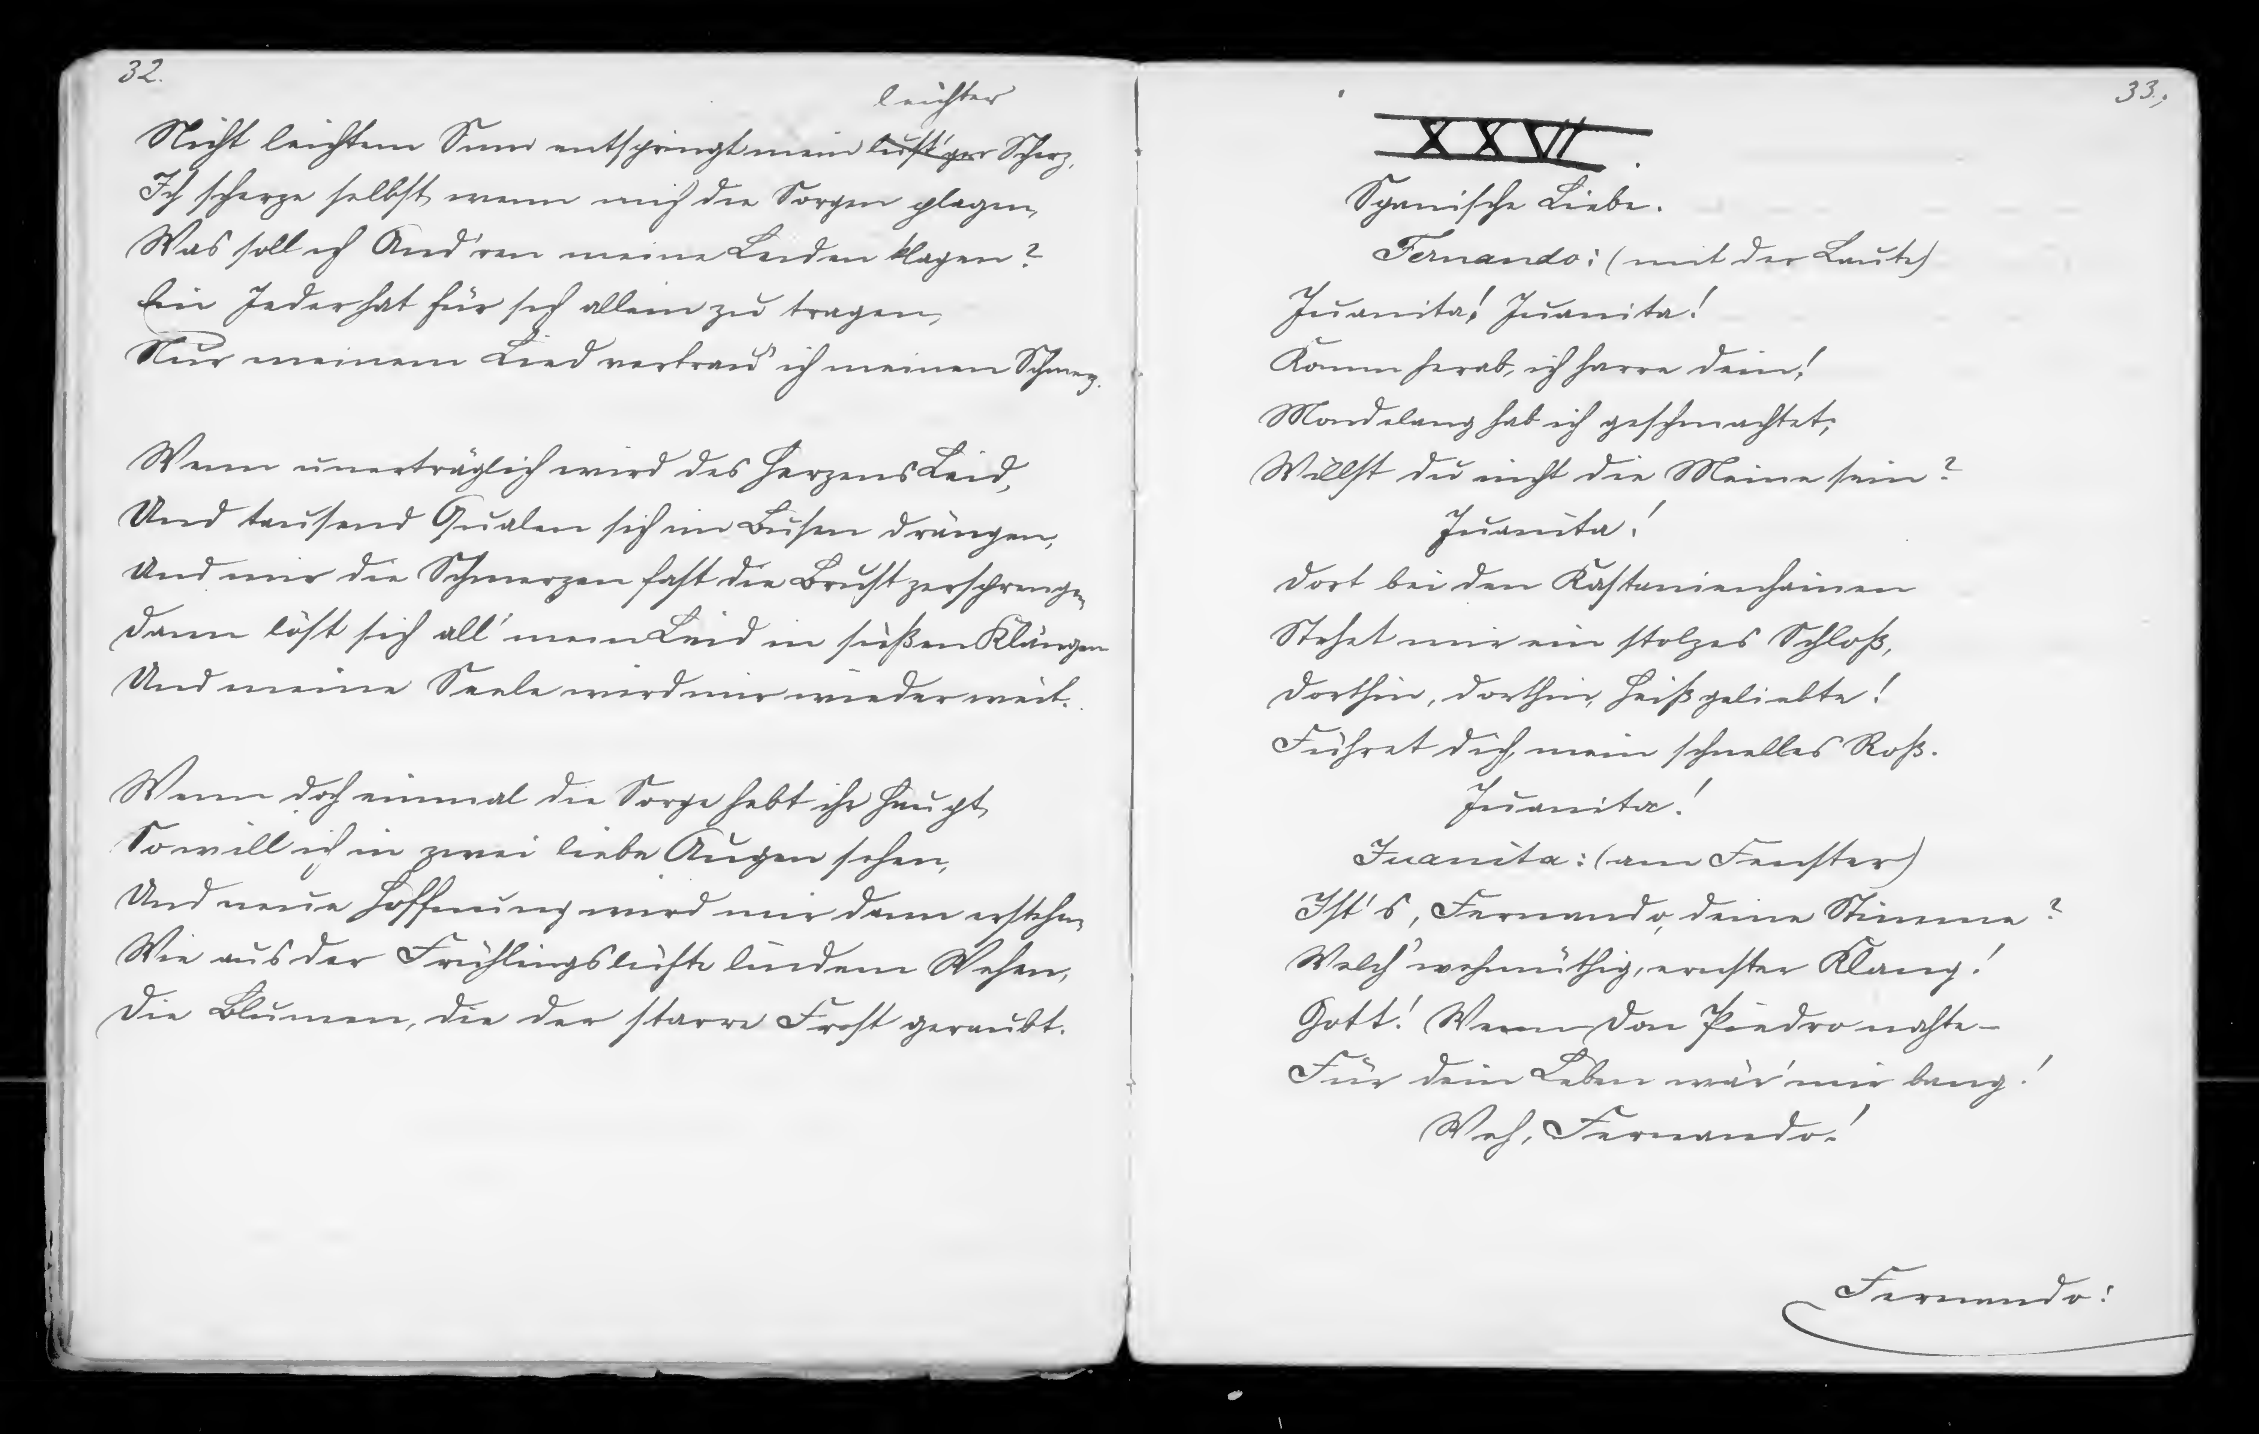 32.
leichter
Nicht leichtem Sinn entspringt mein lust'ger Scherz,
Ich scherze selbst, wenn mich die Sorgen plagen,
Was soll ich And'ren meine Leiden klagen?
Ein Jeder hat für sich allein zu tragen,
Nur meinem Lied vertrau' ich meinen Schmerz.
Wenn unerträglich wird des Herzens Leid,
Und tausend Qualen sich im Busen drängen,
Und mir die Schmerzen fast die Brust zersprengen,
Dann löst sich all' mein Leid in süßen Klängen
Und meine Seele wird mir wieder weit.
Wenn doch einmal die Sorge hebt ihr Haupt,
So will ich in zwei liebe Augen sehen,
Und neue Hoffnung wird mir dann erstehn,
Wie aus der Frühlingslüfte lindem Wehen,
Die Blumen, die der starre Frost geraubt.
33.
XXVI.
Spanische Liebe.
Fernando: (mit der Laute)
Juanita! Juanita!
Komm herab, ich harre dein!
Mondelang hab ich geschmachtet;
Willst du nicht die Meine sein?
Juanita!
Dort bei den Kastanienhainen
Stehet mir ein stolzes Schloß,
Dorthin, dorthin, heißgeliebte!
Führet dich, mein schnelles Roß.
Juanita!
Juanita: (am Fenster)
Ist's, Fernando, deine Stimme?
Welch' wehmüthig, ernster Klang!
Gott! Wenn Don Piedro nahte –
Für dein Leben wär' mir bang!
Weh, Fernando!
Fernando: